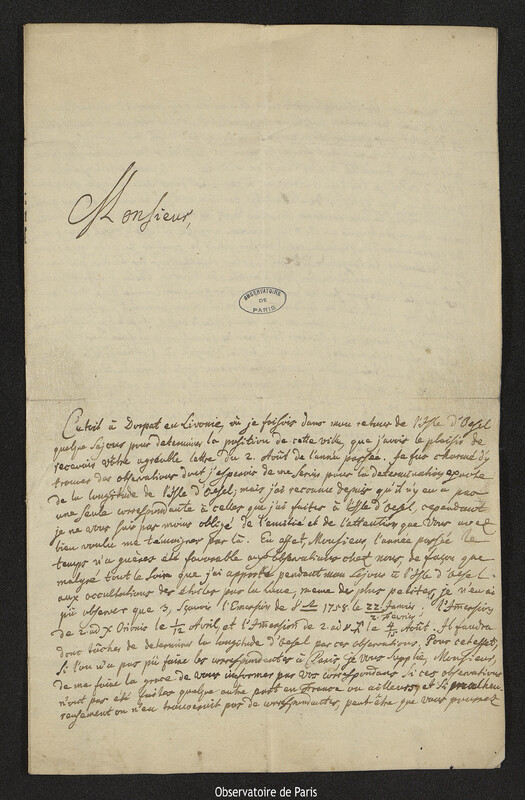 Monsieur,
OBSERVATOIRE
DE
PARIS
C'etoit à Dorpat en Livonie, où je faisois dans mon retour de l'Isle d'Oesel
quelque sejour pour determiner la position de cette ville, que j'avois le plaisir de
recevoir vôtre agreable lettre du 2. Août de l'année passée. Je fus charmé d'y
trouver des observations dont j'esperois de me servir pour la determination exacte
de la longitude de l'Isle d'Oesel; mais j'ai reconnu depuis qu'il n'y en a pas
une seule correspondante à celles que j'ai faites à l'Isle d'Oesel, cependant
je ne vous suis pas moins obligé de l'amitié et de l'attention que vous avez
bien voulu me témoigner par là. En effet, Monsieur, l'année passée le
temps n'a guères été favorable aux observations chez nous, de façon que
malgré tout le soin que j'ai apporté pendant mon sejour à l'Isle d'Oesel
aux occultations des étoiles par la lune, meme des plus petites, je n'en ai
pû observer que 3, sçavoir l'Emersion de 1758 le 22 Janvier / 2 Fevrier; l'Immersion
de 2 ad χ Orionis le 1/12 Avril, et l'Immersion de 2 ad le 4/15 Août. Il faudra
donc tâcher de determiner la longitude d'Oesel par ces observations. Pour cet effet,
si l'on n'a pas pû faire les correspondantes à Paris, je vous supplie, Monsieur,
de me faire la grace de vous informer par vos correspondans si ces observations
n'ont pas été faites quelque autre part en France ou ailleurs, et si malheu-
reusement on n'en trouveroit pas de correspondantes, peut être que vous pourrez
Observatoire de Paris